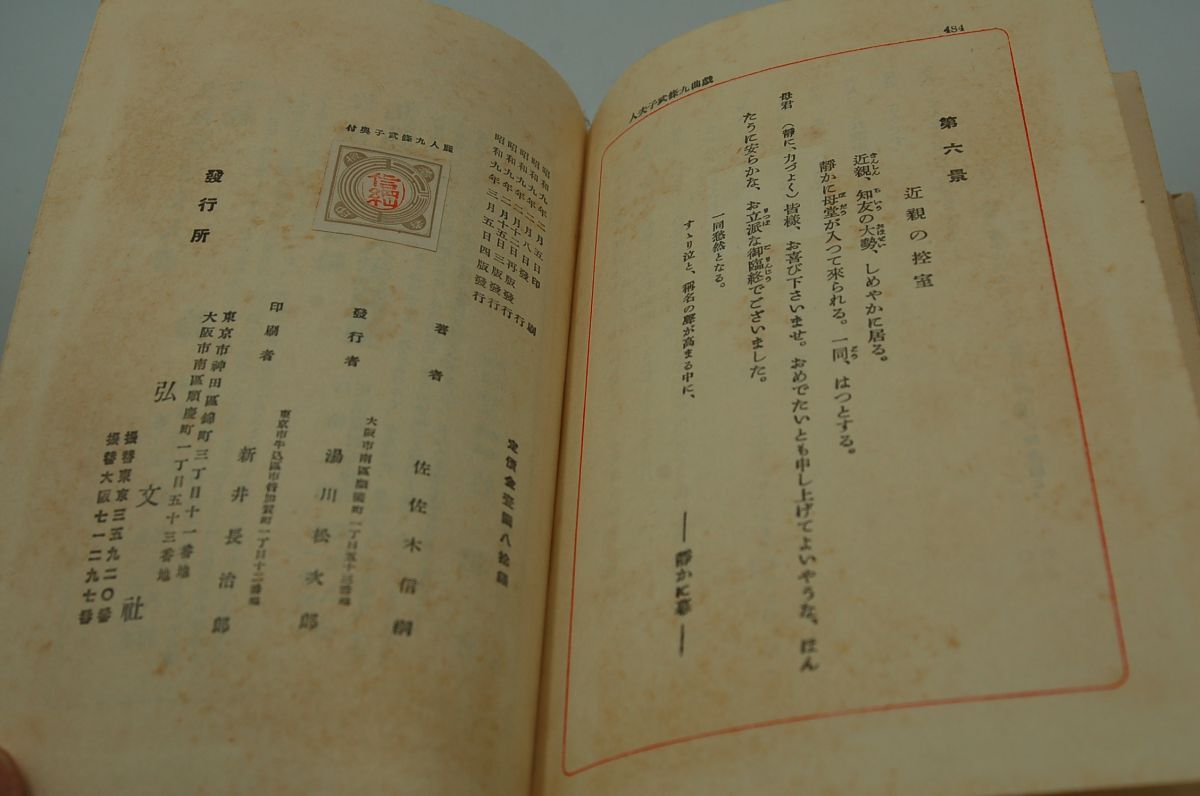 484
戯曲九條武子夫人
第六景
近親の控室
近親、知友の大勢、しめやかに居る。
靜かに母堂が入つて來られる。一同、はつとする。
母君　(靜に、力づよく)皆樣、お喜び下さいませ。おめでたいとも申し上げてよいやうな、ほん
たうに安らかな、お立派な御臨終でございました。
一同愁然となる。
すゝり泣と、稱名の聲が高まる中に、
――靜かに幕――
麗人九條武子奧付
昭和九年二月五日印刷
昭和九年二月八日發行
昭和九年二月十二日再版發行
昭和九年二月十五日三版發行
昭和九年三月五日四版發行
信綱
定價金壹圓八拾錢
著者　佐佐木信綱
大阪市南區順慶町一丁目五十三番地
發行者　湯川松次郎
東京市牛込區市谷加賀町一丁目十二番地
印刷者　新井長治郎
發行所
東京市神田區錦町三丁目十一番地
大阪市南區順慶町一丁目五十三番地
弘文社
振替東京三五九二〇番
振替大阪七一二九七番